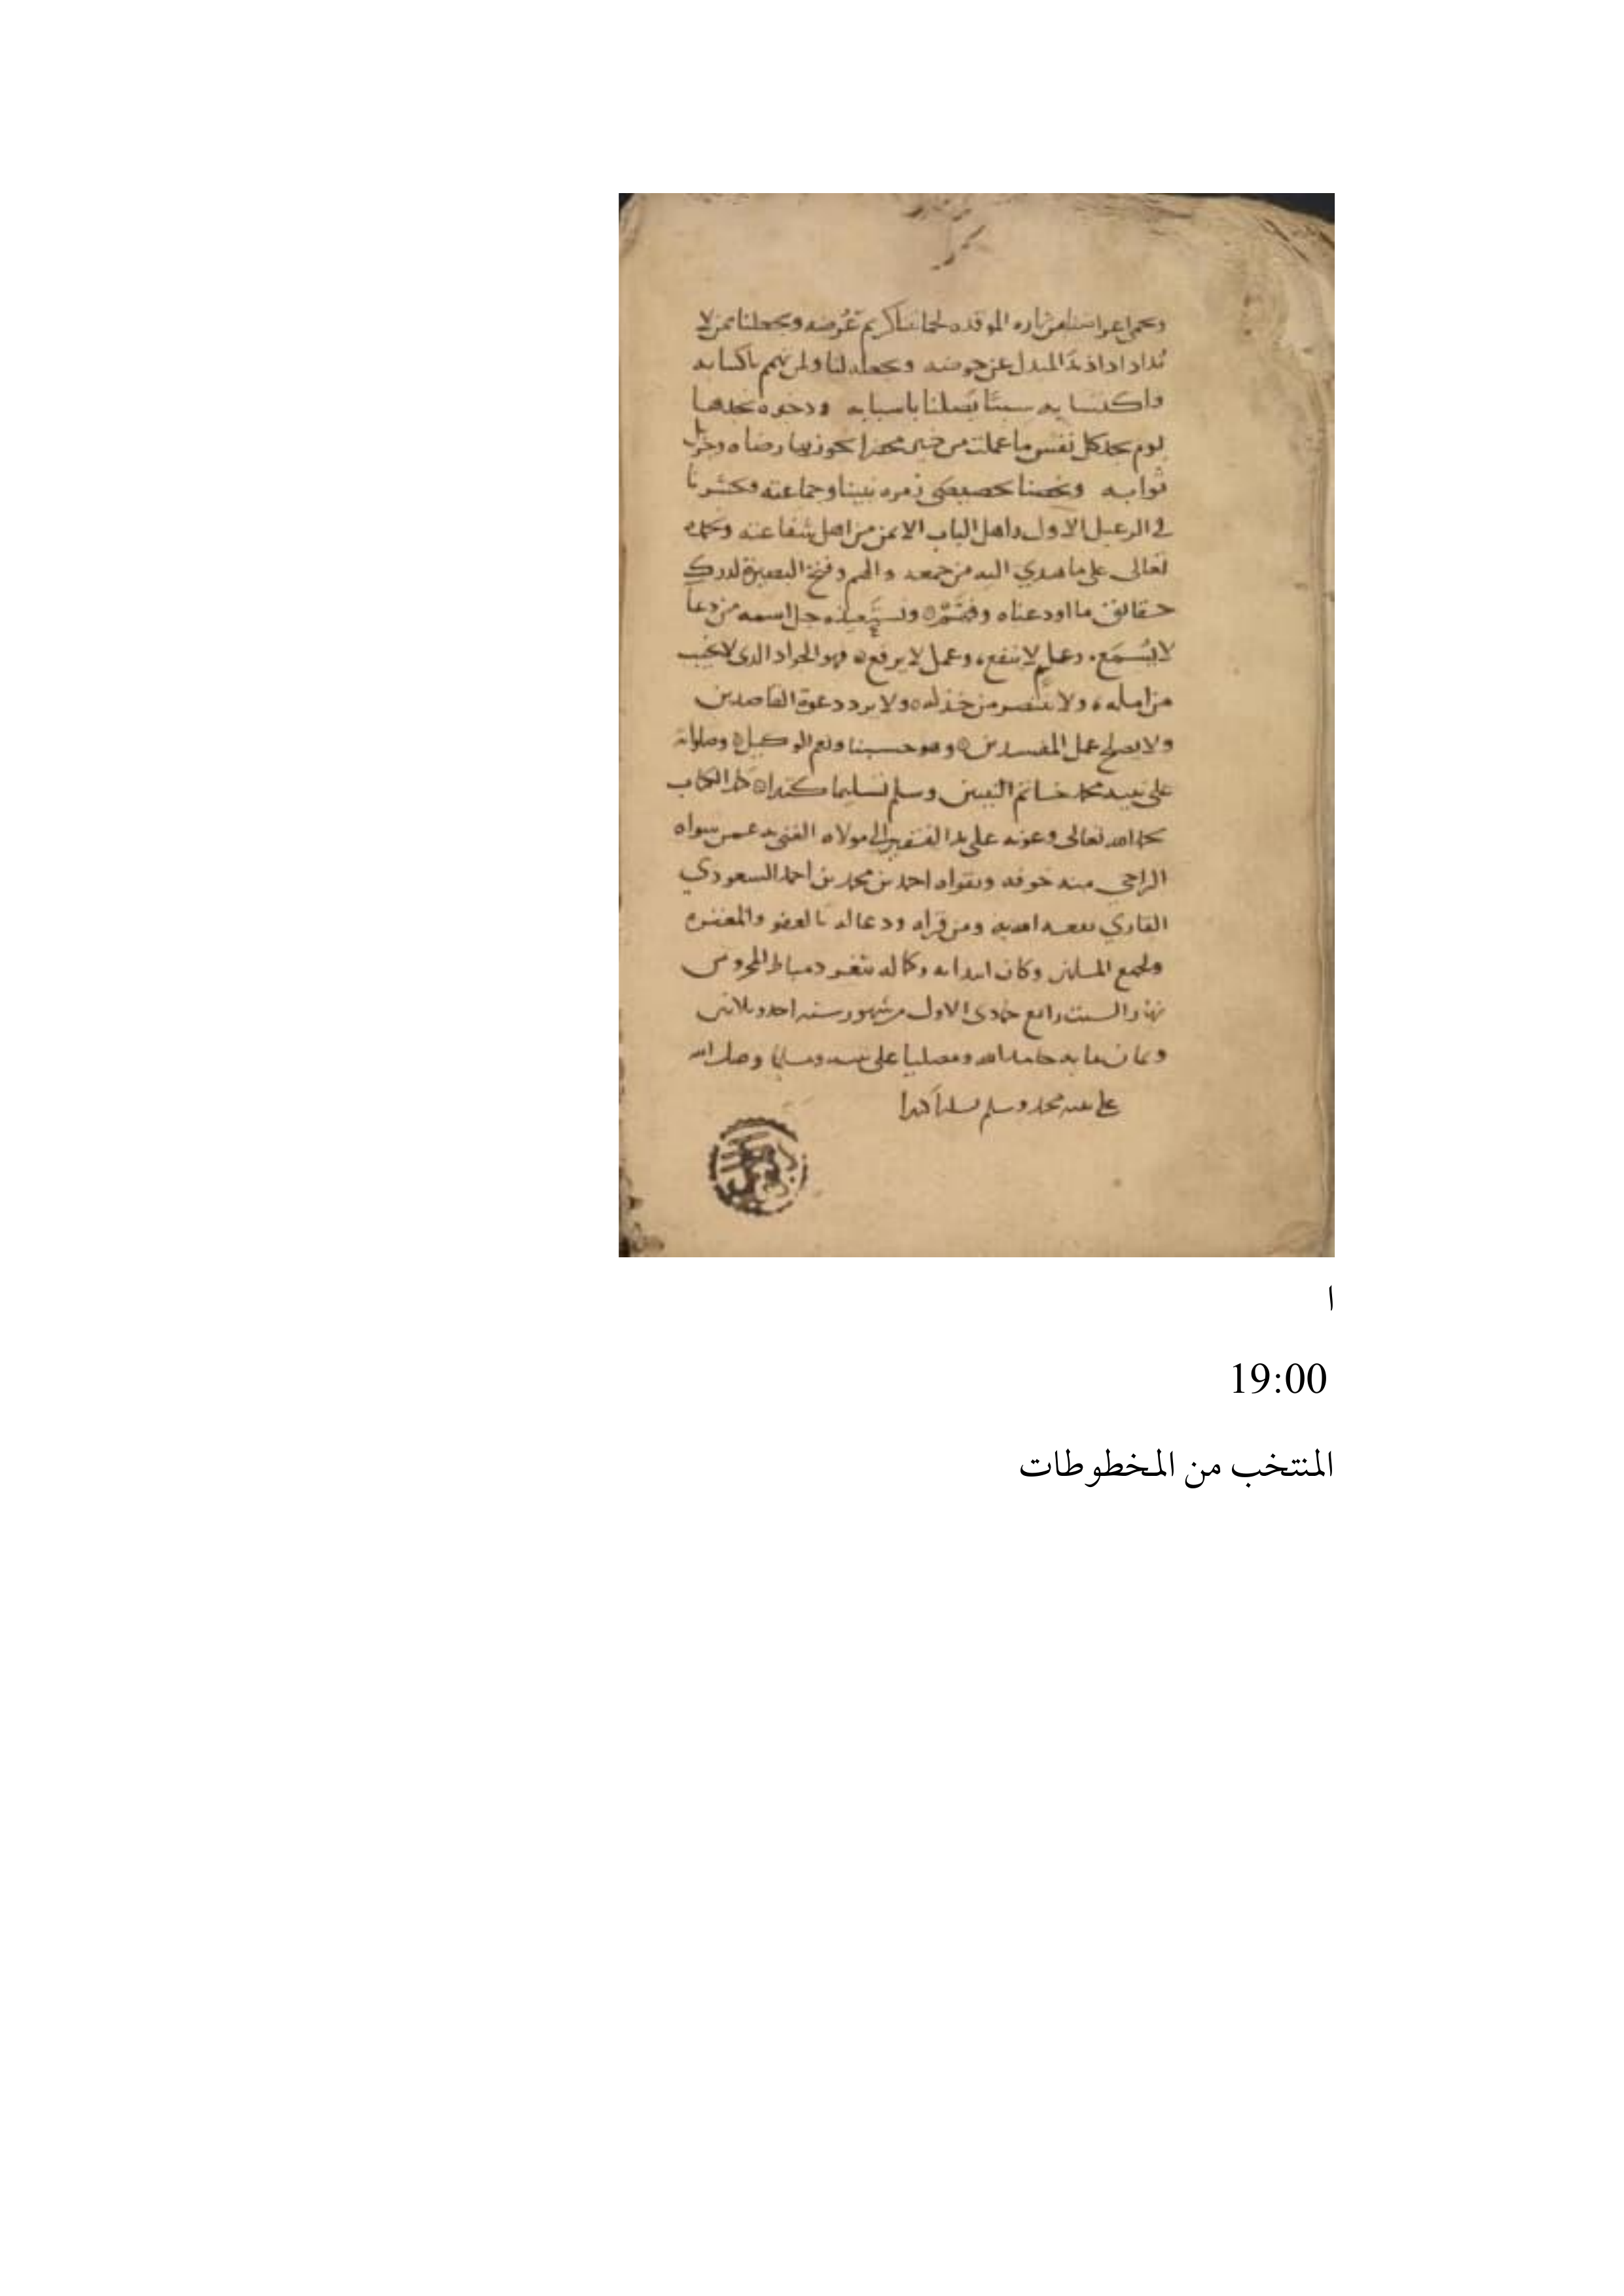 ويحمي اعراضنا من ناره الموقده لحمايتنا كريم عرضه ويجعلنا ممن لا
يذاد اذا ذيد المبدل عن حوضه ويجعله لنا ولمن تهمم باكتتابه
واكتسابه سببًا يصلنا باسبابه وذخيره نجدها
يوم تجد كل نفس ما عملت من خير محضرا نحوز بها رضاه وجزيل
ثوابه ويخصنا بخصيصى زمره نبينا وجماعته ويحشرنا
في الرعيل الاول واهل الباب الايمن من اهل شفاعته ونحمده
تعالى على ما هدي اليه من جمعه والهم وفتح البصيرة لدرك
حقائق ما اودعناه وفهم ونستعيذه جل اسمه من دعا
لا يُسْمَع، وعلم لا ينفع، وعمل لا يرفع فهو الجواد الذي لا يخيب
من امله، ولا ينتصر من خذله ولا يرد دعوة القاصدين
ولا يصلح عمل المفسدين وهو حسبنا ونعم الوكيل وصلواته
على نبيه محمد خاتم النبيين وسلم تسليما كثيرا الكتاب
بحمد الله تعالى وعونه على يد الفقير الى مولاه الغني به عمن سواه
الراجي منه خوفه وتقواه احمد بن محمد بن احمد السعودي
القاري نفعه الله به ومن قراه ودعا له بالعفو والمغفره
ولجميع المسلمين وكان ابتدايه وكماله بثغر دمياط المحروس
نهار السبت رابع جمادى الاول من شهور سنه احد وثلاثين
وثمان مايه حامدا لله ومصليا على نبيه ومسلما وصلى الله
على نبيه محمد وسلم تسليما كثيرا
ا
19:00
المنتخب من المخطوطات